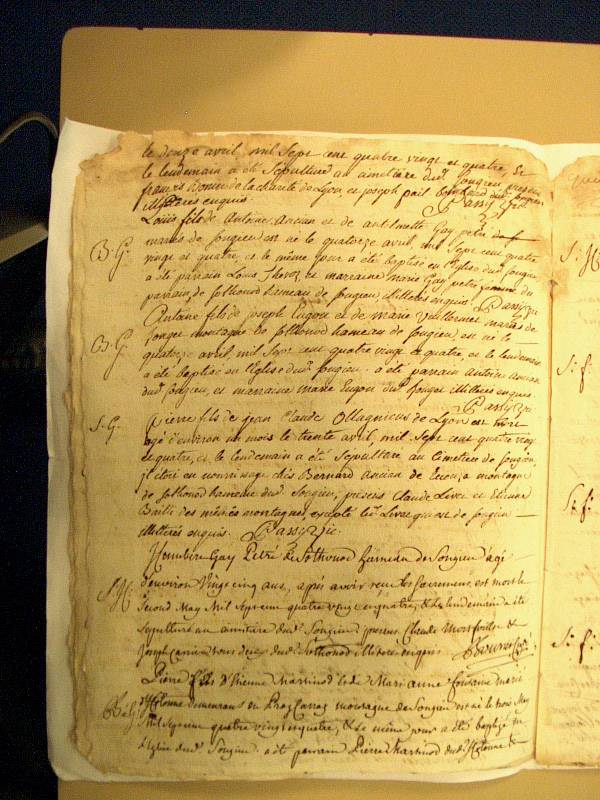 le douze avril mil sept cent quatre vingt et quatre, et
le lendemain a été sepulturé au cimetière dud. Songieu presens
françois Bonne de la charité de Lyon, et joseph
illitérés enquis. Passy
Louis fils de Antoine Ancian et de antoinette Gay petré
mariés de songieu est né le quatorze avril mil sept cent quatre
B. G. vingt et quatre, et le même jour a été baptisé en l'Eglise dud. songieu
a été parain Louis et marraine marie Gay petré femme du
parain, de sothonod hameau de songieu illitérés enquis. Passy
Antoine fils de joseph Eugon et de marie mariés de
montagne de sothonod hameau de songieu, est né le
B. G. quatorze avril mil sept cent quatre vingt et quatre, et le lendemain
a été baptisé en l'Eglise dud. songieu. a été parain Antoine Ancian
dud. songieu, et marraine marie Eugon dud. illitérés enquis
Passy
S. G. Pierre fils de jean Claude Ollagnieus de Lyon est mort
agé d'environ un mois le trente avril, mil sept cent quatre vingt
et quatre, et le lendemain a été sepulturé au cimetière de songieu,
il étoit en nourrissage chés Bernard Ancian de montagne
de sothonod hameau dud. Songieu, présens Claude Livet et Etienne
Bailli des mêmes montagnes, excepté led. Livet qui est de songieu
illitérés enquis. Passy
Humbert Gay Petré de Sothonod hameau de Songieu agé
S. H. d'environ Vingt cinq ans, après avoir reçu les sacremens, est mort le
Second May Mil Sept cent quatre vingt et quatre, & le lendemain a été
sepulturé au cimetière dud. Songieu presens, Claude Montfort &
Joseph tous deux dud. Sothonod illitérés enquis
Pierre fils d'Etienne Martinod & de Marianne fontaine mariés
d'Hotonne demeurans en montagne de Songieu est né le trois May
B. G. Mil Sept cent quatre vingt et quatre, & le même jour a été baptizé en
l'Eglise dud. Songieu. a été parain Pierre Martinod dud. Hotonne &
S. H.
S. f.
S. f.
S. f.